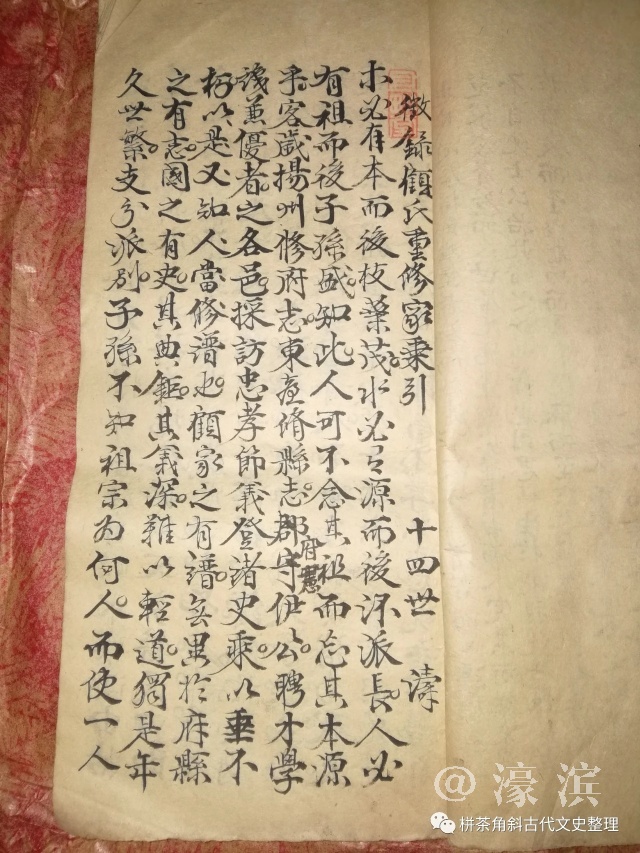 徵錄顧氏重修家乘引 十四世 濤
木必有本而後枝葉茂水必有源而後派長人必
有祖而後子孫盛知此人可不念其祖而忘其本源
乎客歲揚州修府志東臺脩縣志郡守伊公聘才學
府憲
識兼優者之各邑採訪忠孝節義登諸史乘以垂不
朽以是又知人當修譜也顧家之有譜無異於府縣
之有志國之有史其典鉅其義深難以輕道獨是年
久世繁支分派別子孫不知祖宗為何人而使一人
@濠滨
栟茶角斜古代文史整理